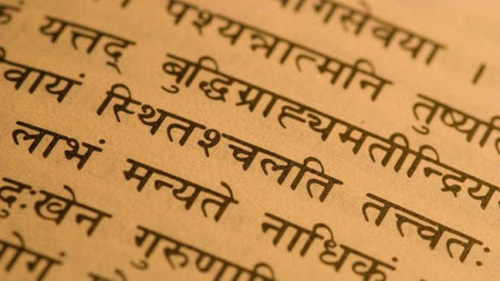 गसेवया ।
पश्यन्नात्मनि तुष्यति
यत्तद् बुद्धिग्राह्यमतीन्द्रिय
वायं स्थितश्चलति तत्त्वतः
लाभं मन्यते नाधिकं
दुःखेन गुरुणापि